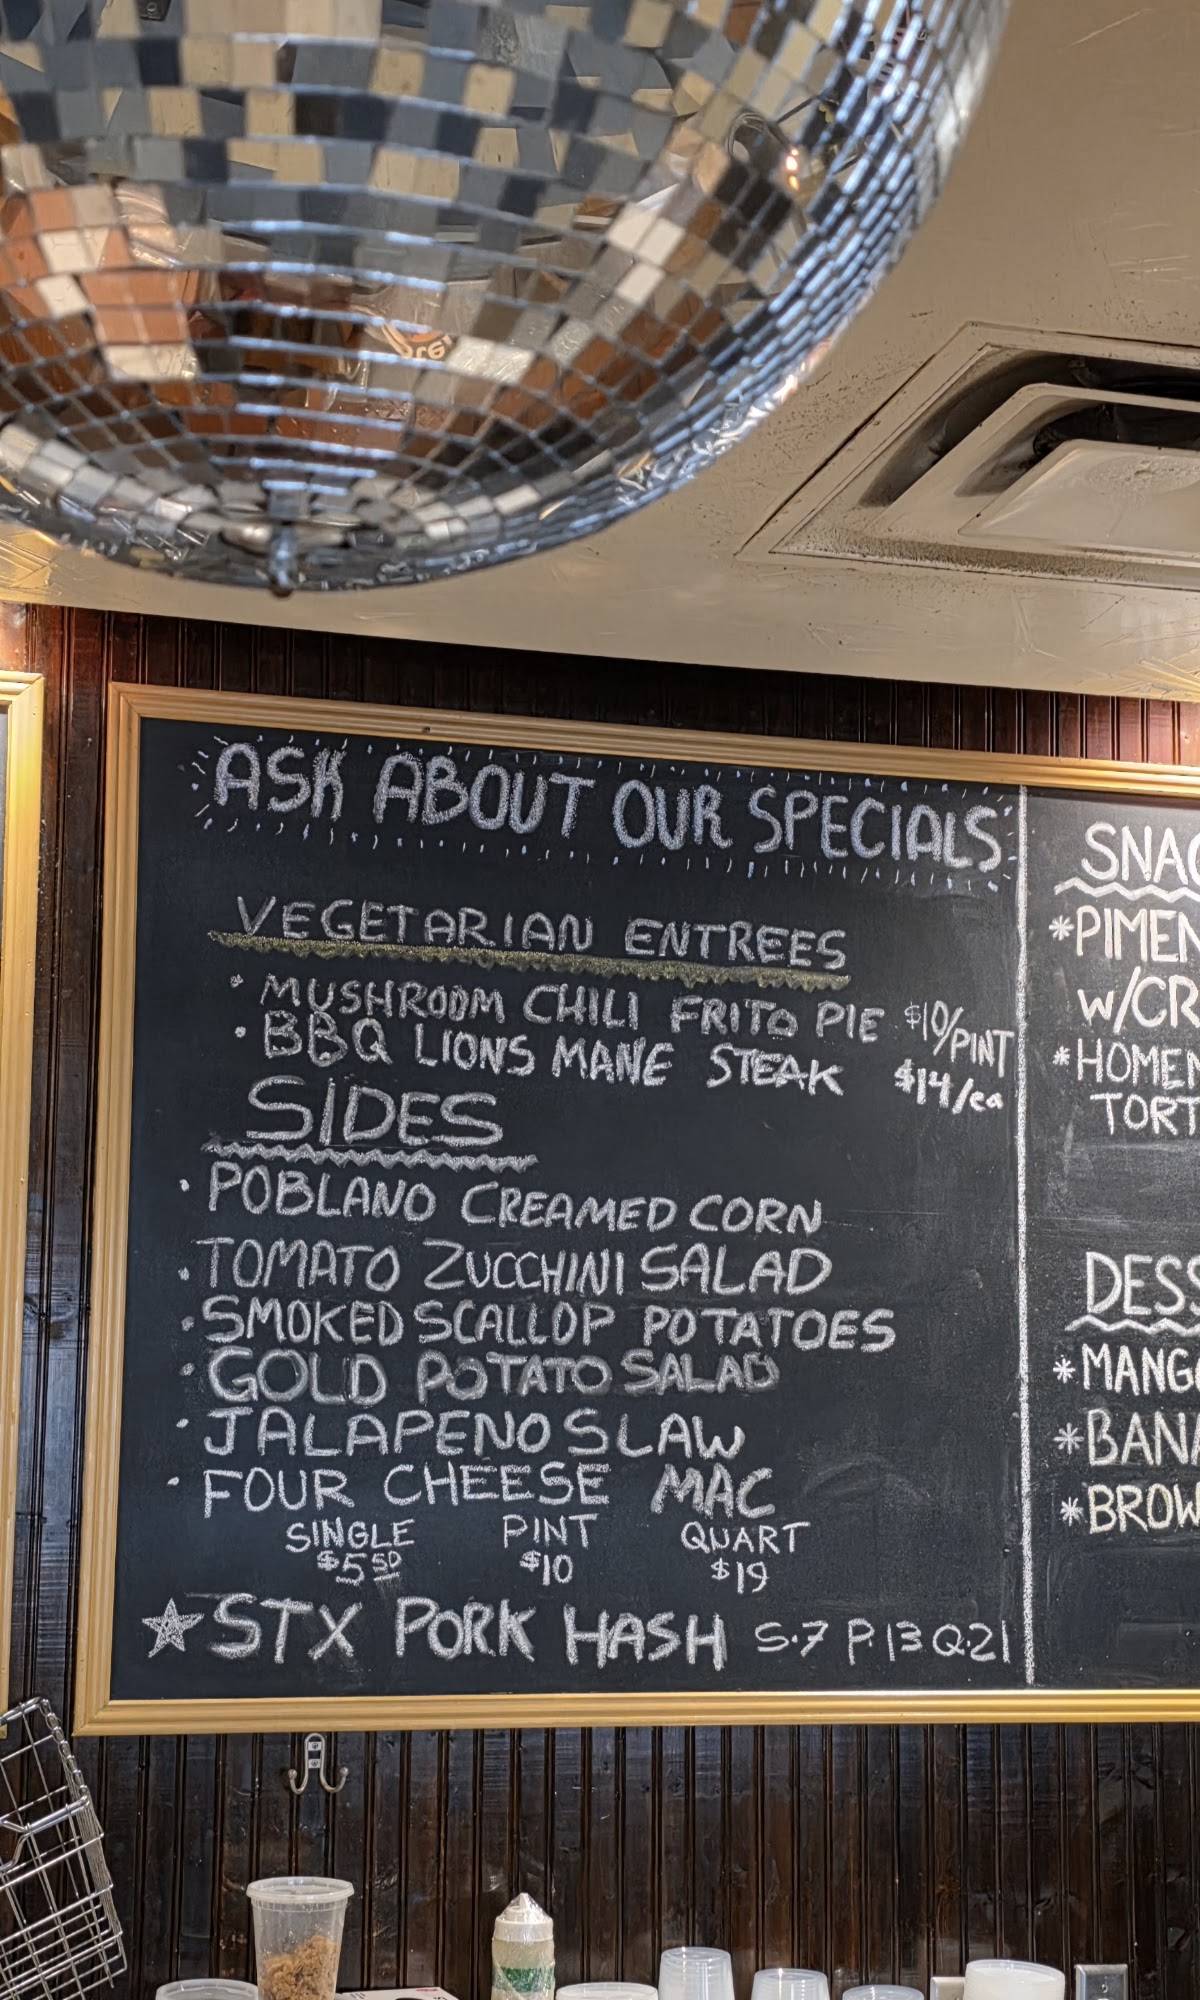 ASK ABOUT OUR SPECIALS
VEGETARIAN ENTREES
• MUSHROOM CHILI FRITO PIE $10/PINT
• BBQ LIONS MANE STEAK $14/ea
SIDES
• POBLANO CREAMED CORN
• TOMATO ZUCCHINI SALAD
• SMOKED SCALLOP POTATOES
• GOLD POTATO SALAD
• JALAPENO SLAW
• FOUR CHEESE MAC
SINGLE PINT QUART
$5.50 $10 $19
☆ STX PORK HASH S.7 P.13 Q.21
SNAC
*PIMEN
w/CR
*HOMEM
TORT
DESS
*MANG
*BANA
*BROW